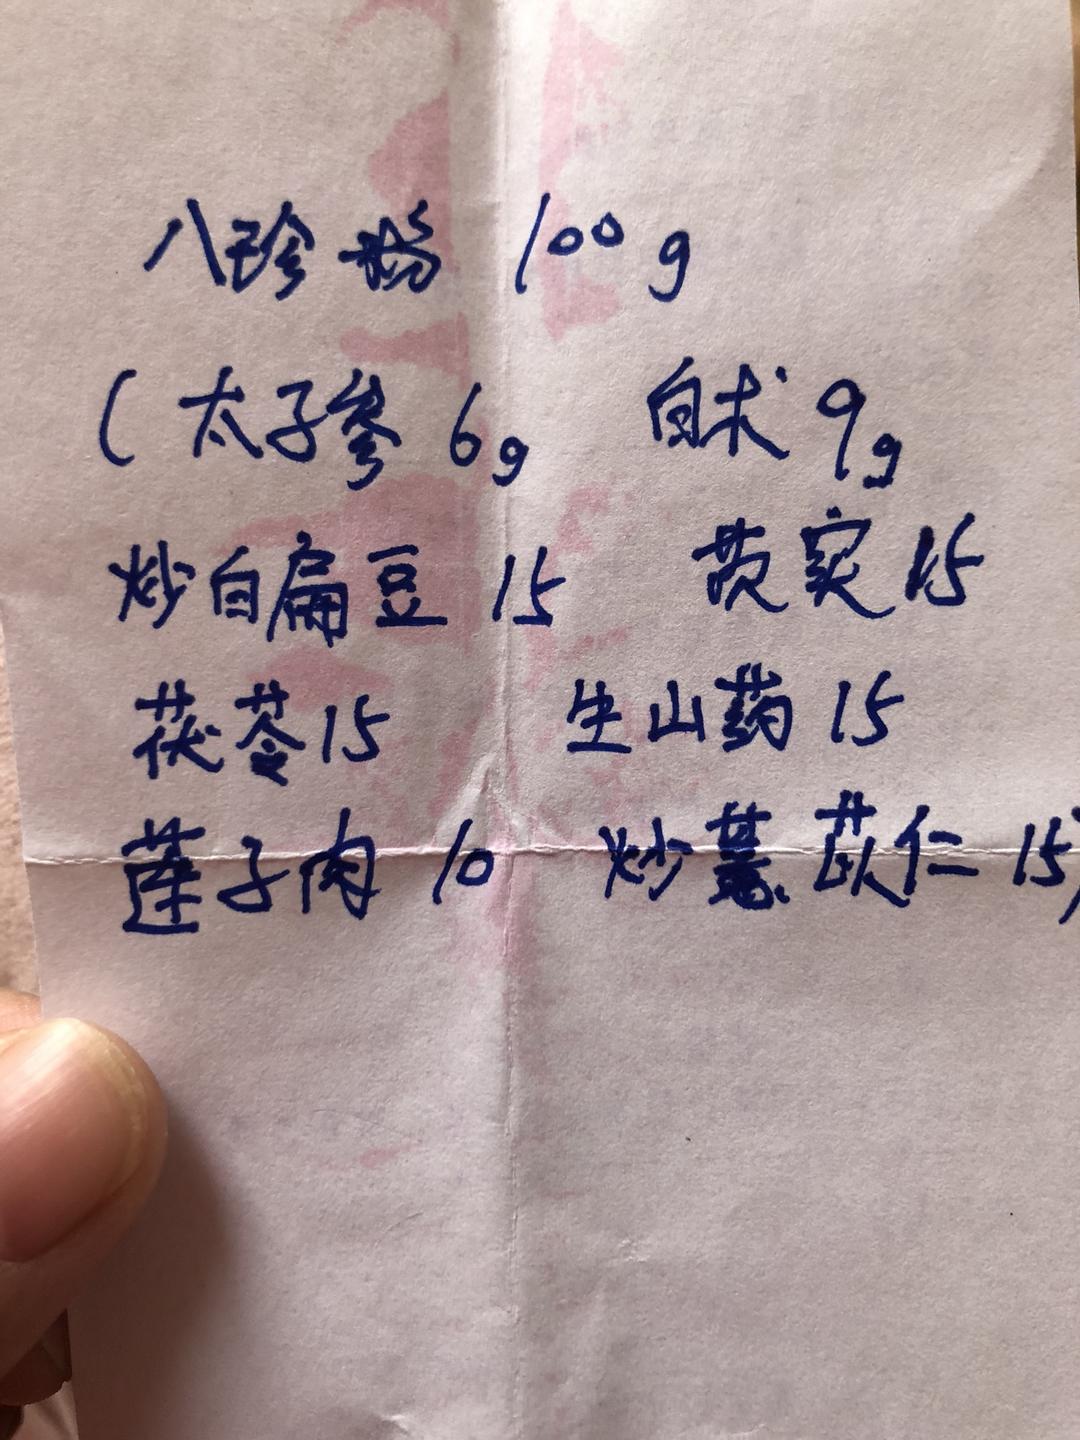 八珍粉 100g
(太子参 6g 白术 9g
炒白扁豆 15 芡实 15
茯苓 15 生山药 15
莲子肉 10 炒薏苡仁 15)